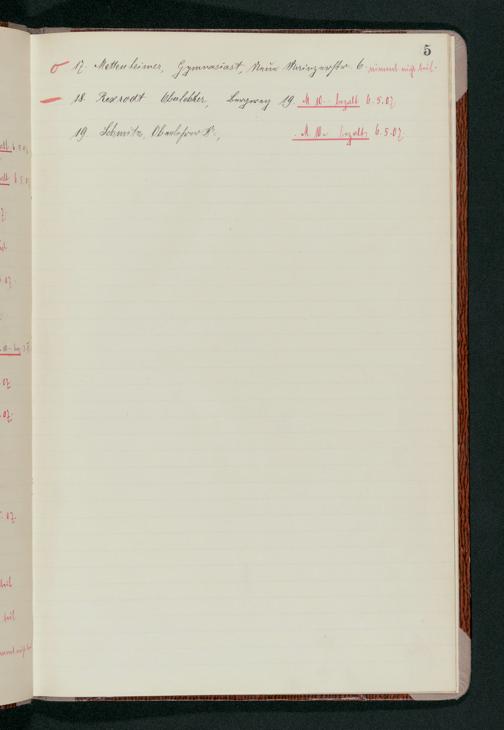 5
17. Mettenheimer, Gymnasiast, Neue Mainzerstr. 6 nimmt nicht teil.
18. Rexrodt Oberlehrer, Bergweg 19. M 10.- bezalt 6.5.07.
19 Schmitz, Oberlehrer Dr., M 10.- bezalt 6.5.07.